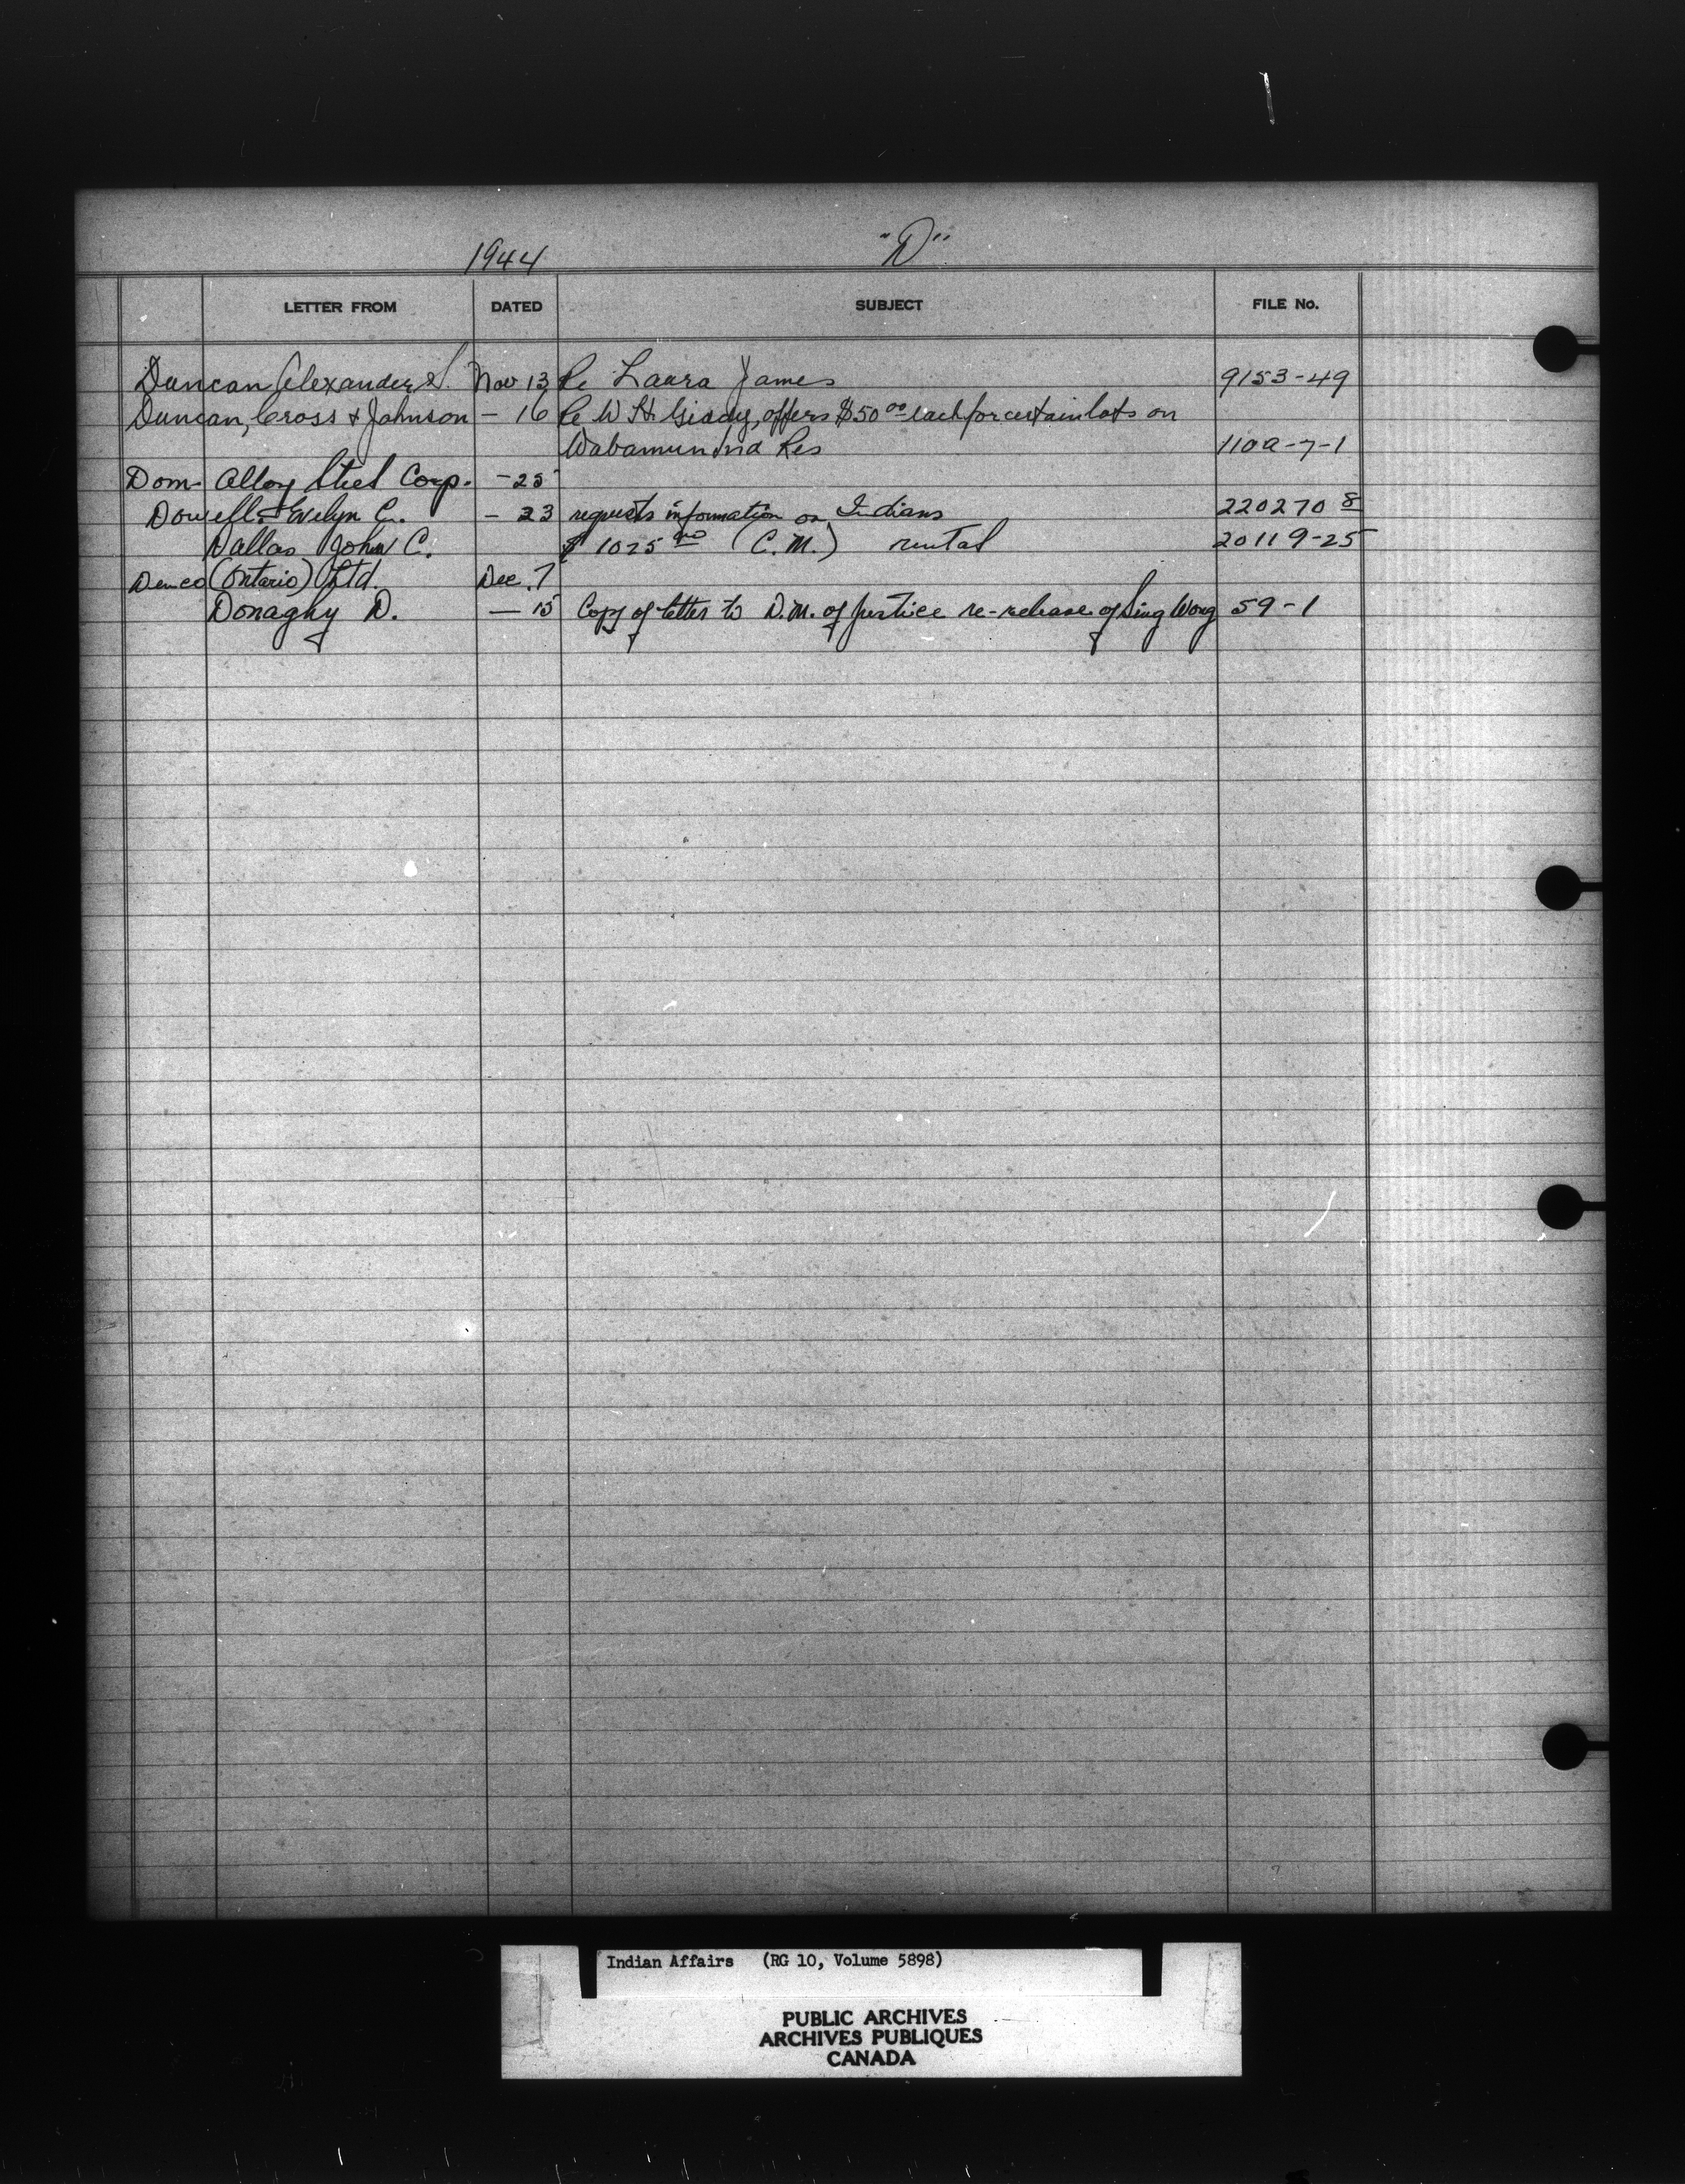 1944 "D"
LETTER FROM DATED SUBJECT FILE No.
Duncan Alexander S. Nov 13 Re Laura James 9153-49
Duncan, Cross & Johnson - 16 Re W. H. offers $50 00 each for certain lots on
Wabamun Ind Res 110a-7-1
Dom. Alloy Steel Corp. - 25
Dowell. Evelyn C. - 23 requests information on Indians 220270 8
Dallas John C. $ 1025 00 (C. M.) rental 20119-25
Demco (Ontario) Ltd. Dec. 7
Donaghy D. — 15 Copy of letter to D.M. of Justice re-release of Sing Wong 59-1
Indian Affairs (RG 10, Volume 5898)
PUBLIC ARCHIVES
ARCHIVES PUBLIQUES
CANADA